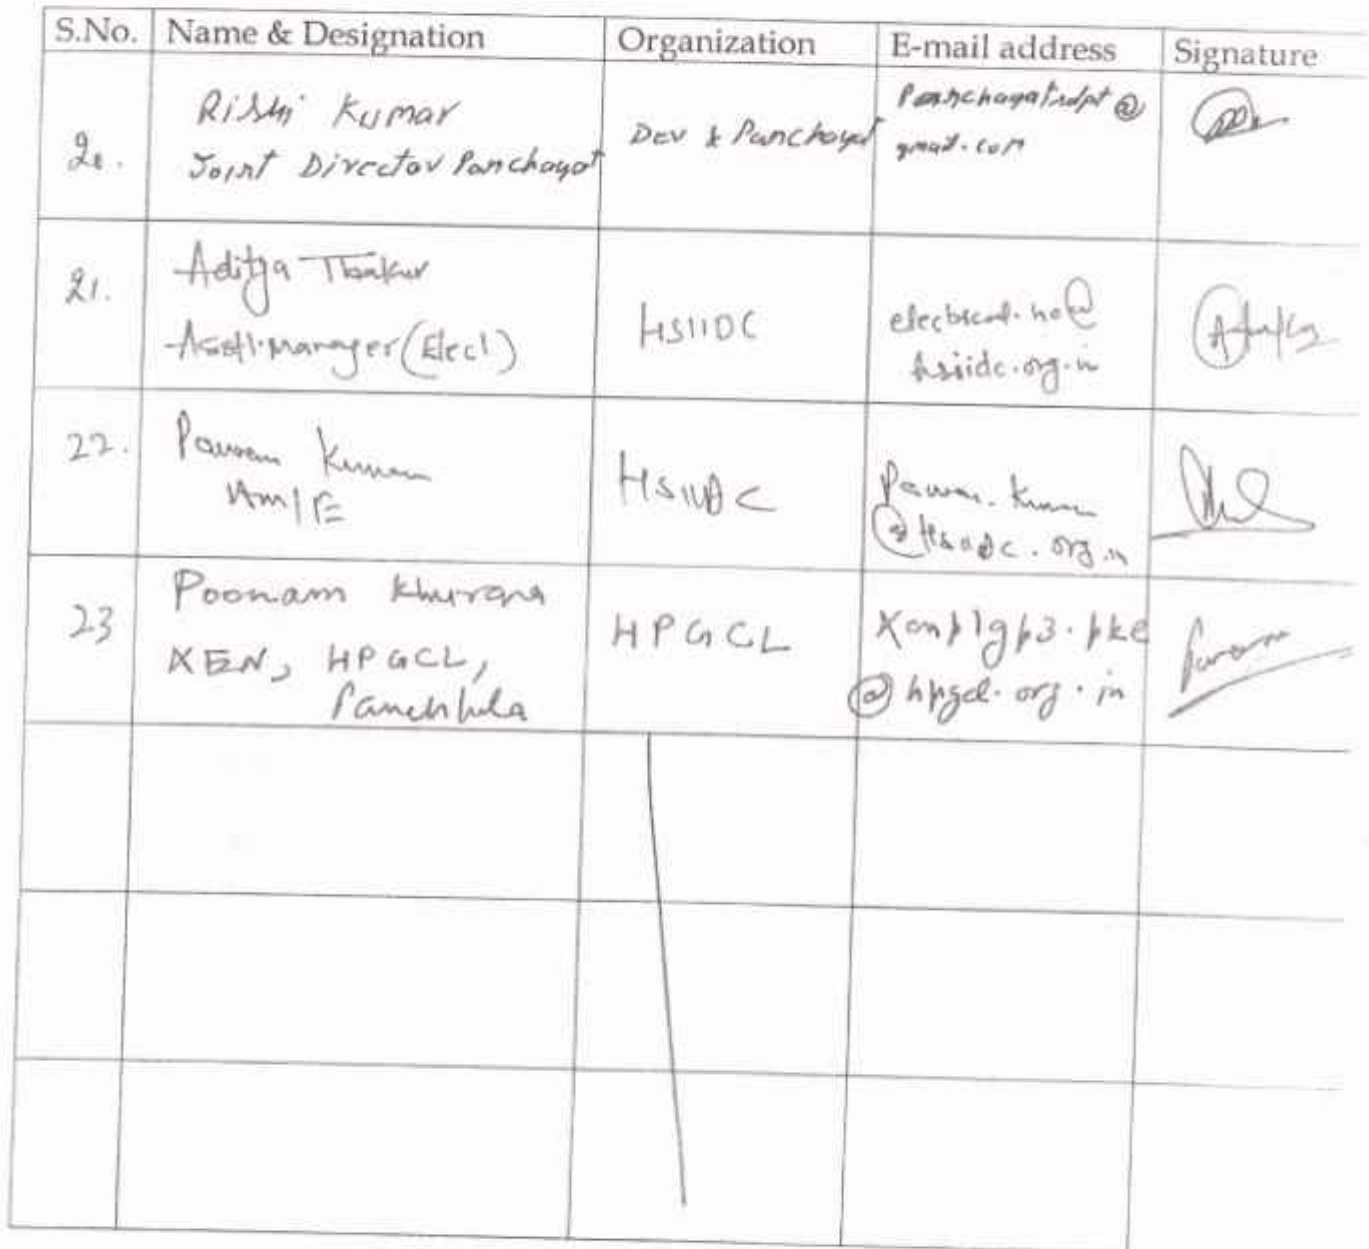 S.No. Name & Designation Organization E-mail address Signature
20.
Rishi Kumar
Joint Director Panchayat
Dev & Panchayat
Panchayatrdpt@
gmail.com
21.
Aditya Thakur
Asstt. Manager (Elecl)
HSIIDC
electrical.ho@
hsiidc.org.in
22.
Pawan Kumar
AM/E
HSIIDC
Pawan.Kumar
@Hsiidc.org.in
23
Poonam Khurana
XEN, HPGCL,
Panchkula
HPGCL
@hpgcl.org.in